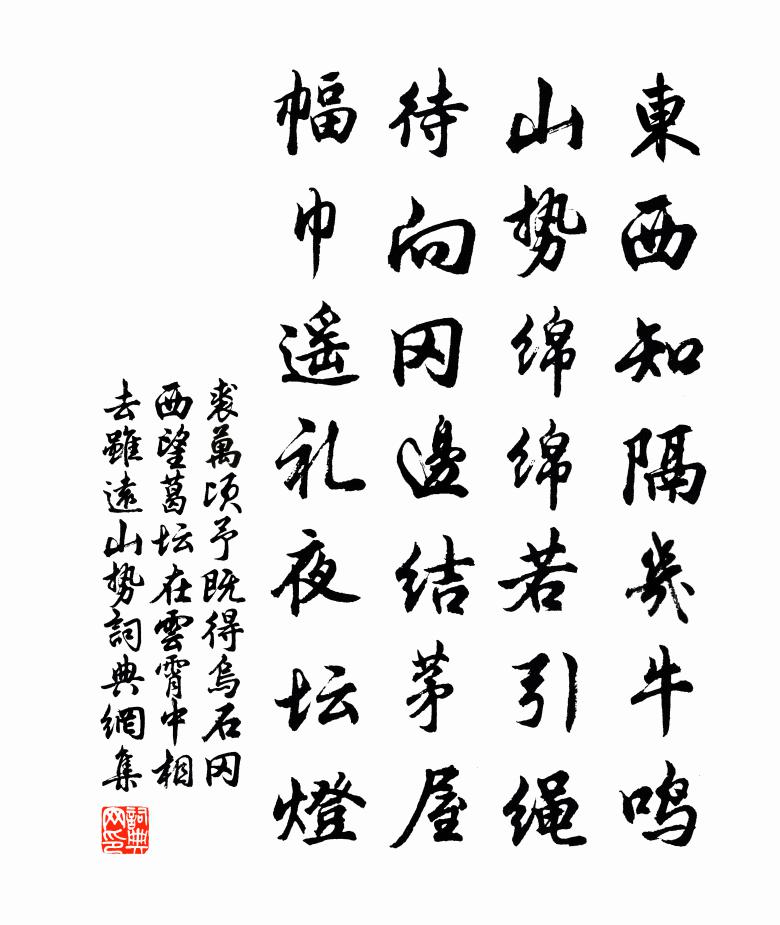 東西知隔幾牛鸣
山势绵绵若引绳
待向冈邊结茅屋
幅巾遥礼夜坛燈
裘萬頃予既得烏石冈
西望葛坛在雲霄中相
去雖遠山势詞典網集
詞典网印